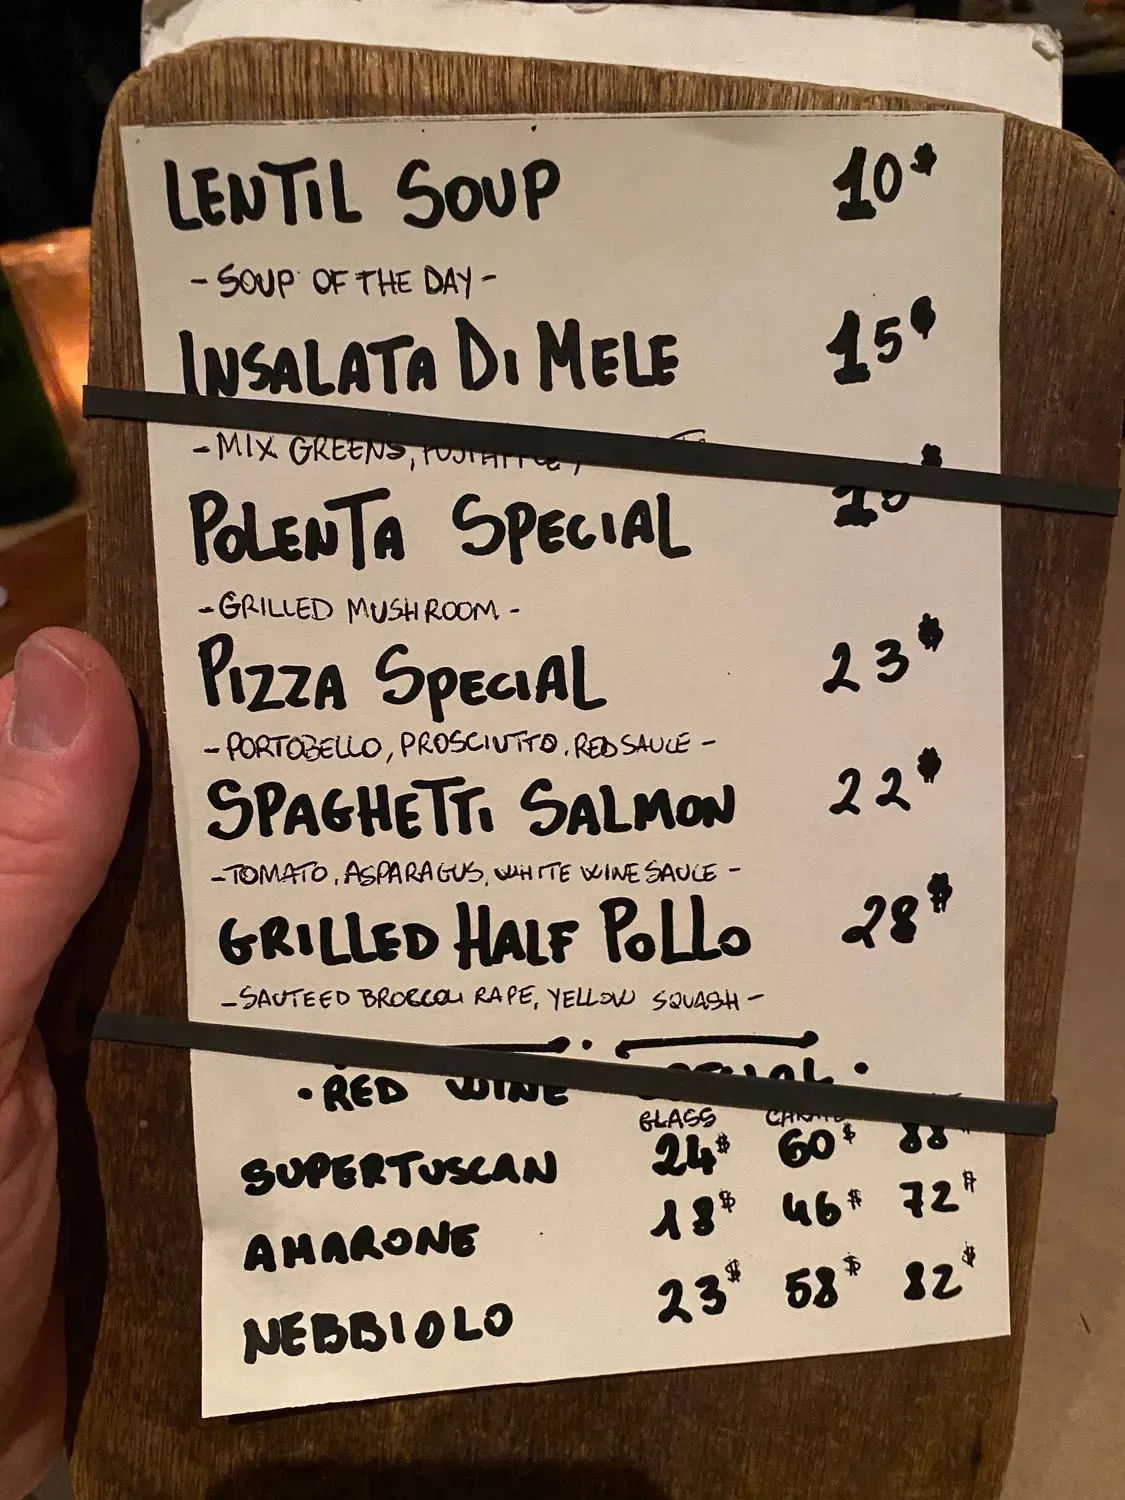 LENTIL SOUP 10$
- SOUP OF THE DAY -
INSALATA DI MELE 15$
- MIX GREENS, FUJI APPLE,
POLENTA SPECIAL
- GRILLED MUSHROOM -
PIZZA SPECIAL 23$
- PORTOBELLO, PROSCIUTTO, RED SAUCE -
SPAGHETTI SALMON 22$
- TOMATO, ASPARAGUS, WHITE WINE SAUCE -
GRILLED HALF POLLO 28$
- SAUTEED BROCCOLI RAPE, YELLOW SQUASH -
• RED WINE
GLASS
SUPERTUSCAN 24$ 60$ 88
AMARONE 18$ 46$ 72$
NEBBIOLO 23$ 58$ 82$